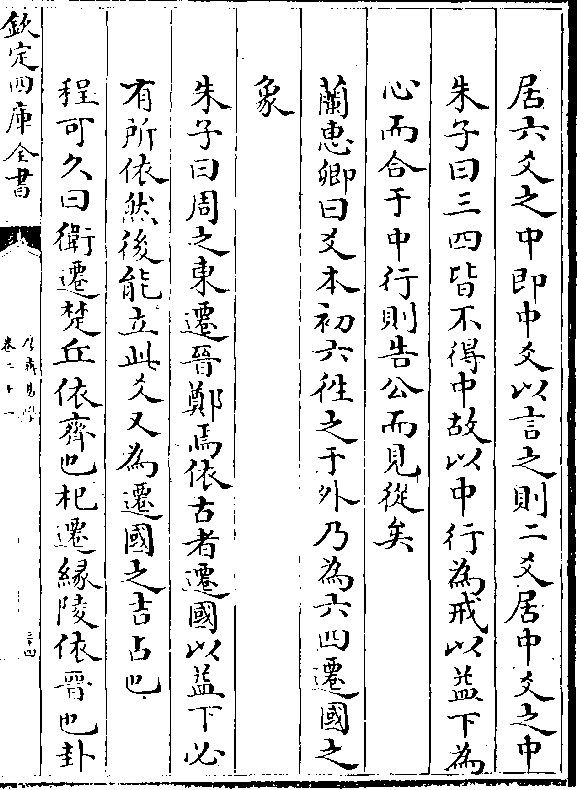 居六爻之中即中爻以言之則二爻居中爻之中
朱子曰三四皆不得中故以中行為戒以益下為
心而合于中行則告公而見從矣
蘭惠卿曰爻本初六徃之于外乃為六四遷國之
象
朱子曰周之東遷晉鄭焉依古者遷國以益下必
有所依然後能立此爻又為遷國之吉占也
程可久曰衛遷楚丘依齊也杞遷緣陵依晉也卦
欽定四庫全書
卷二十一
三十四